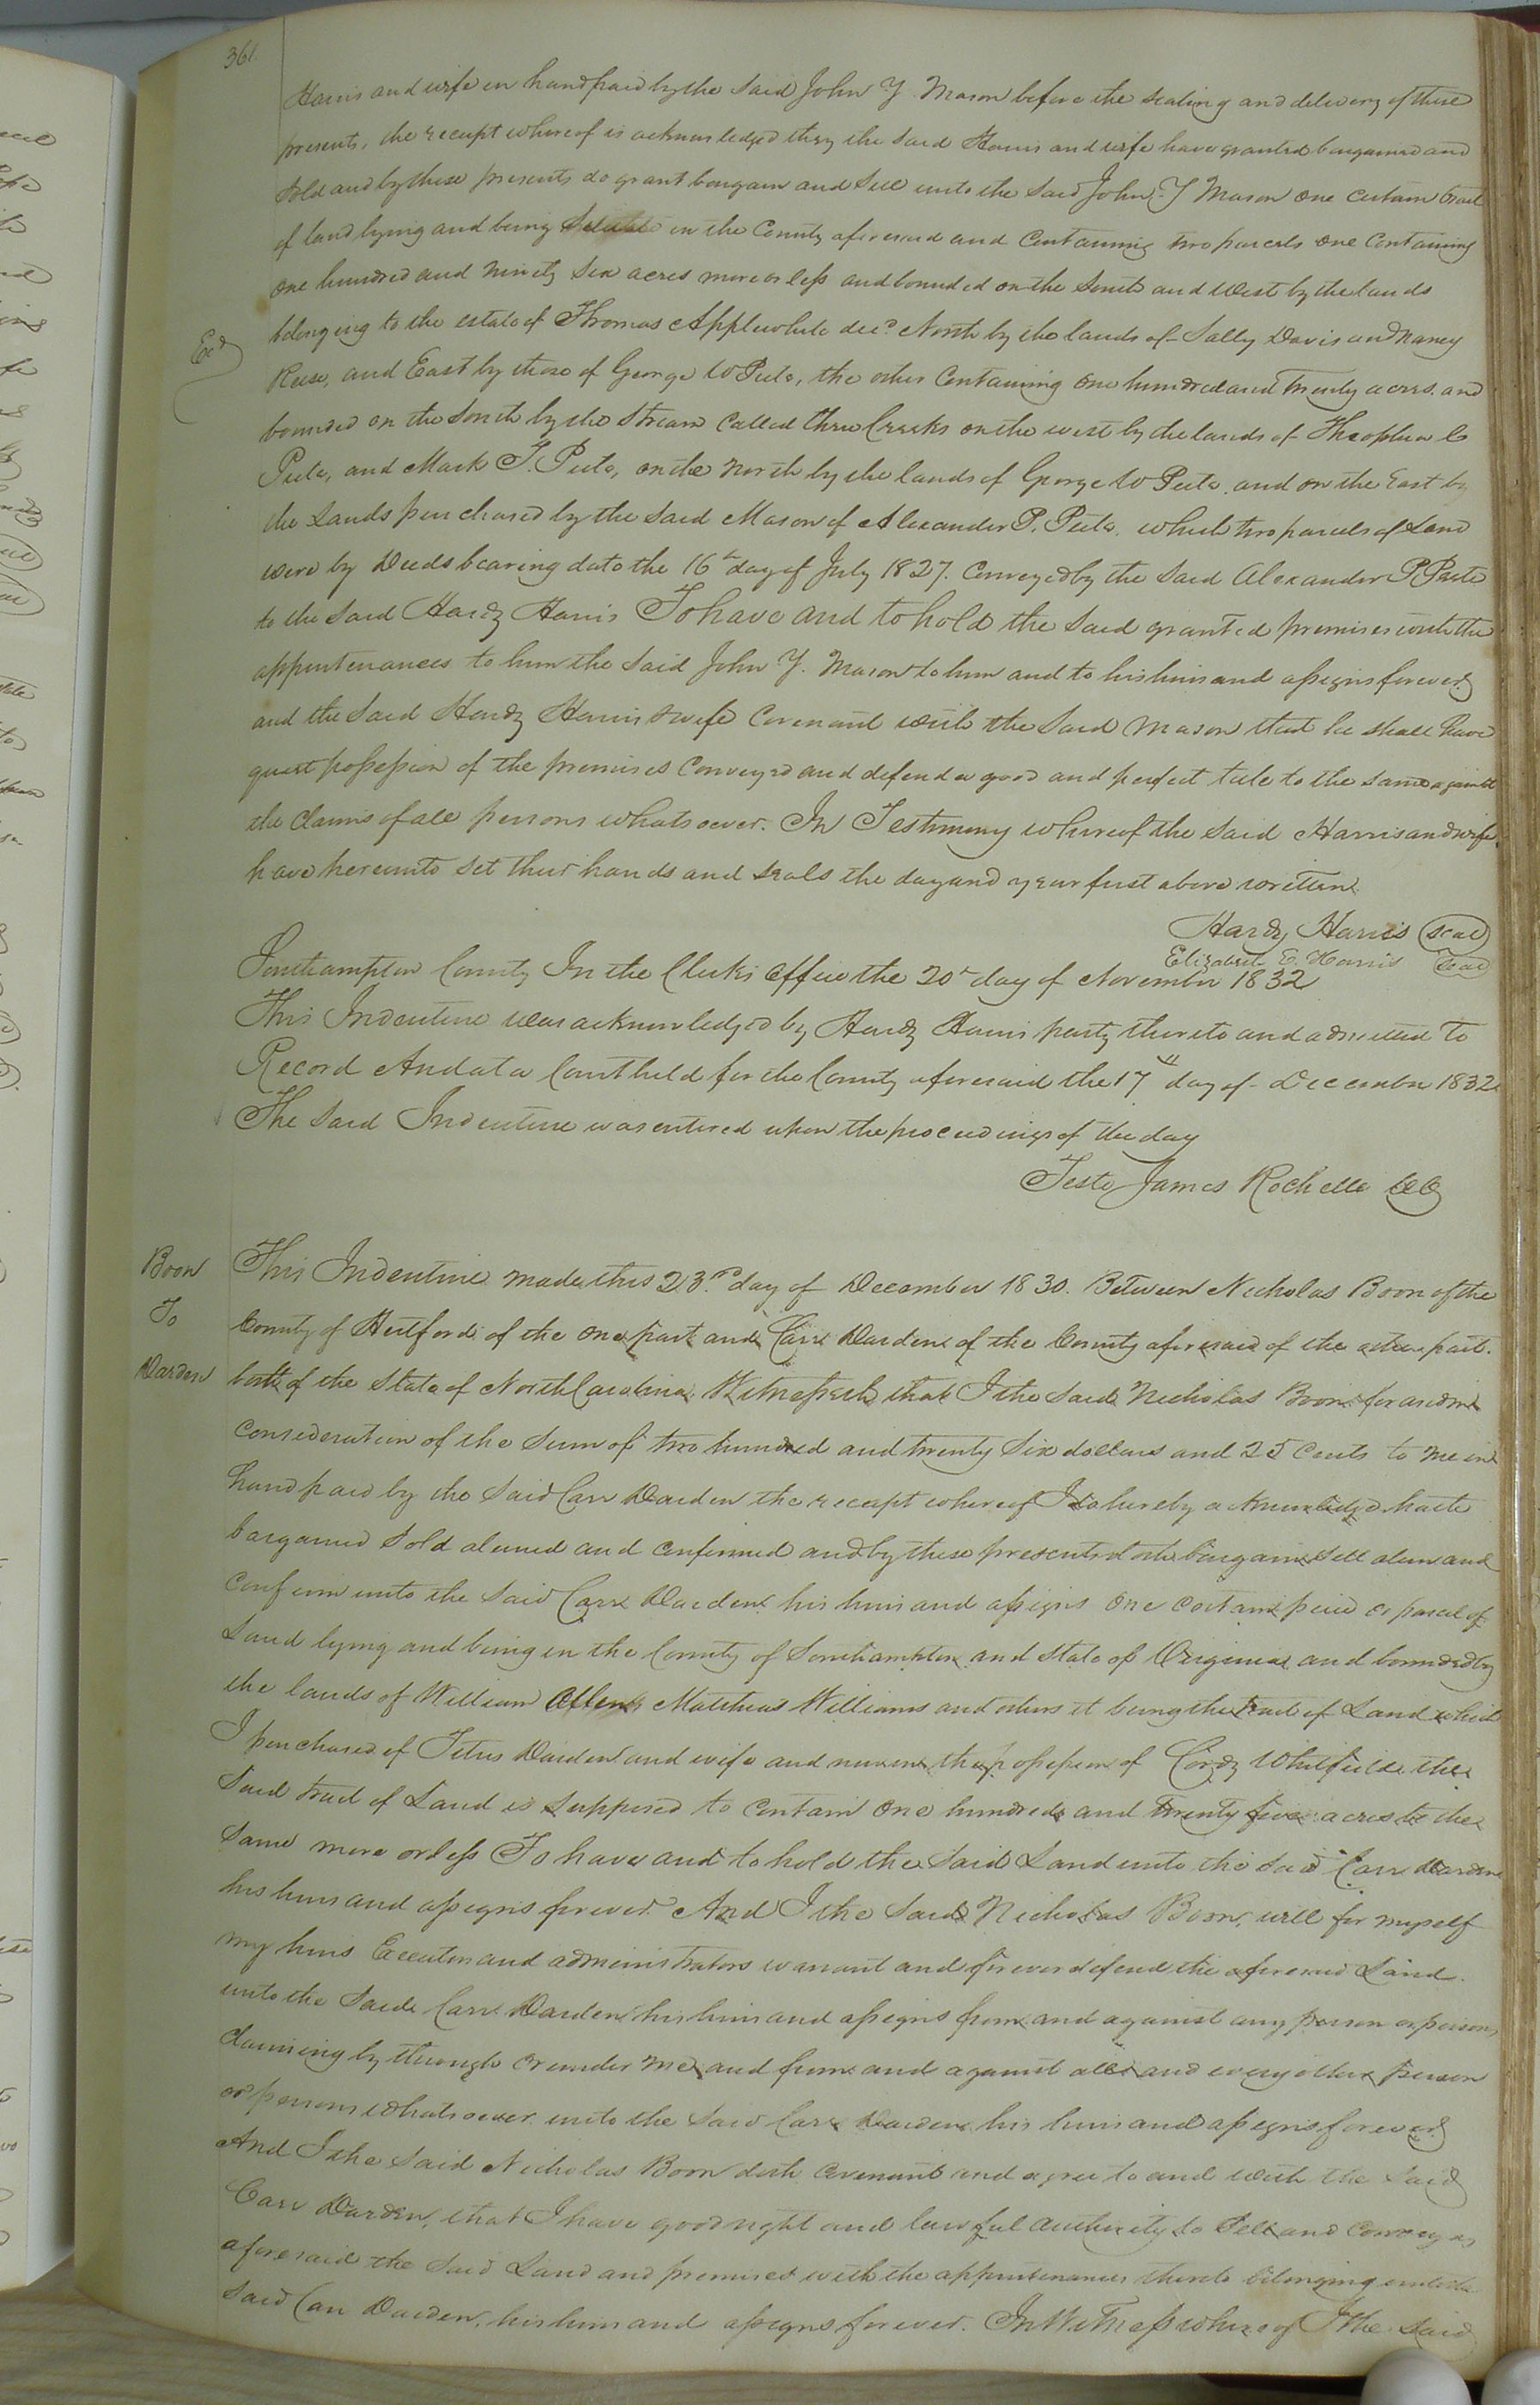 361.
Harris and wife in hand paid by the Said John Y. Mason before the sealing and delivery of these
presents, the receipt whereof is acknowledged they the Said Harris and wife have granted bargained and
Sold and by these presents do grant bargain and Sell unto the Said John Y Mason one certain tract
of land lying and being Situate in the County aforesaid and Containing two parcels one Containing
one hundred and Ninety Six acres more or less and bounded on the South and West by the lands
belonging to the estate of Thomas Applewhite dec.d North by the lands of Sally Davis and Nancy
Exd
Reese, and East by those of George W Peete, the other Containing One hundred and Twenty acres. and
bounded on the South by the Stream Called three Creeks on the west by the lands of Theophilus C
Peete, and Mark J. Peete, on the North by the lands of George W Peete. and on the East by
the Lands purchased by the Said Mason of Alexander P. Peete. which two parcels of Land
were by Deeds bearing date the 16th day of July 1827. Conveyed by the Said Alexander P. Peete
to the Said Hardy Harris To have and to hold the Said granted premises with the
appurtenances to him the Said John Y. Mason to him and to his heirs and assigns forever
and the Said Hardy Harris & wife Covenant with the Said Mason that he shall have
quiet possession of the premises Conveyed and defend a good and perfect title to the same against
the Claims of all persons whatsoever. In Testimony whereof the Said Harris and wife
have hereunto Set their hands and seals the day and year first above written
Hardy Harris (seal)
Elizabeth E. Harris (seal)
Southampton County In the Clerks Office the 20th day of November 1832
This Indenture was acknowledged by Hardy Harris party thereto and admitted to
Record And at a Court held for the County aforesaid the 17th day of December 1832
The Said Indenture was entered upon the proceedings of the day
Teste James Rochelle CC
Boon
To
Darden
This Indenture made this 23rd day of December 1830. Between Nicholas Boon of the
County of Hertford of the one part and Carr Darden of the County aforesaid of the other part.
both of the State of North Carolina. Witnesseth that I the Said Nicholas Boon for and in
Consideration of the Sum of two hundred and twenty Six dollars and 25 Cents to me in
hand paid by the Said Carr Darden the receipt whereof I do hereby acknowledge hath
bargained Sold aliened and Confirmed and by these presents doth bargain Sell alien and
Confirm unto the Said Carr Darden his heirs and assigns One certain piece or parcel of
Land lying and being in the County of Southampton and State of Virginia and bounded by
the lands of William Allen, Matthew Williams and others it being the tract of Land which
I purchased of Titus Darden and wife and now in the possession of Cordy Whitfield the
Said tract of Land is Supposed to Contain One hundred and Twenty five acres be the
Same more or less To have and to hold the Said Land unto the Said Carr Darden
his heirs and assigns forever. And I the Said Nicholas Boon, will for myself
my heirs Executors and administrators warrant and forever defend the aforesaid Land.
unto the Said Carr Darden his heirs and assigns from and against any person or persons
Claiming by through or under me and from and against all and every other person
or persons whatsoever. unto the Said Carr Darden his heirs and assigns forever
And I the Said Nicholas Boon doth Covenant and agree to and with the Said
Carr Darden, that I have good right and lawful authority to Sell and Convey as
aforesaid the Said Land and premises with the appurtenances thereto belonging unto the
Said Carr Darden, his heirs and assigns forever. In Witness whereof I the Said